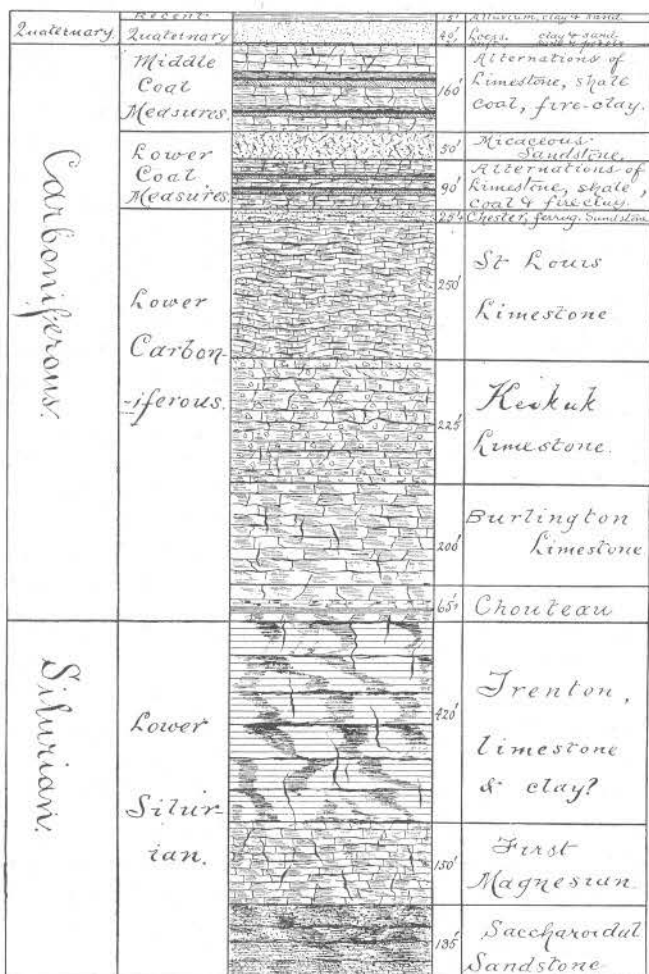 Recent.
15' Alluvium, clay & sand.
Quaternary. Quaternary 40' Loess. clay & sand
2' Drift.
Carboniferous.
Middle
Coal
Measures.
160'
Alternations of
Limestone, shale
coal, fire-clay.
Lower
Coal
Measures.
50'
Micaceous
Sandstone.
90'
Alternations of
Limestone, shale,
coal & fireclay.
Lower
Carbon-
-iferous.
25' Chester, ferrug. Sandstone
250'
St Louis
Limestone
225'
Keokuk
Limestone.
200'
Burlington
Limestone
65' Chouteau
Silurian.
Lower
Silur-
ian.
420'
Trenton,
limestone
& clay?
150'
First
Magnesian.
135'
Saccharoidal
Sandstone